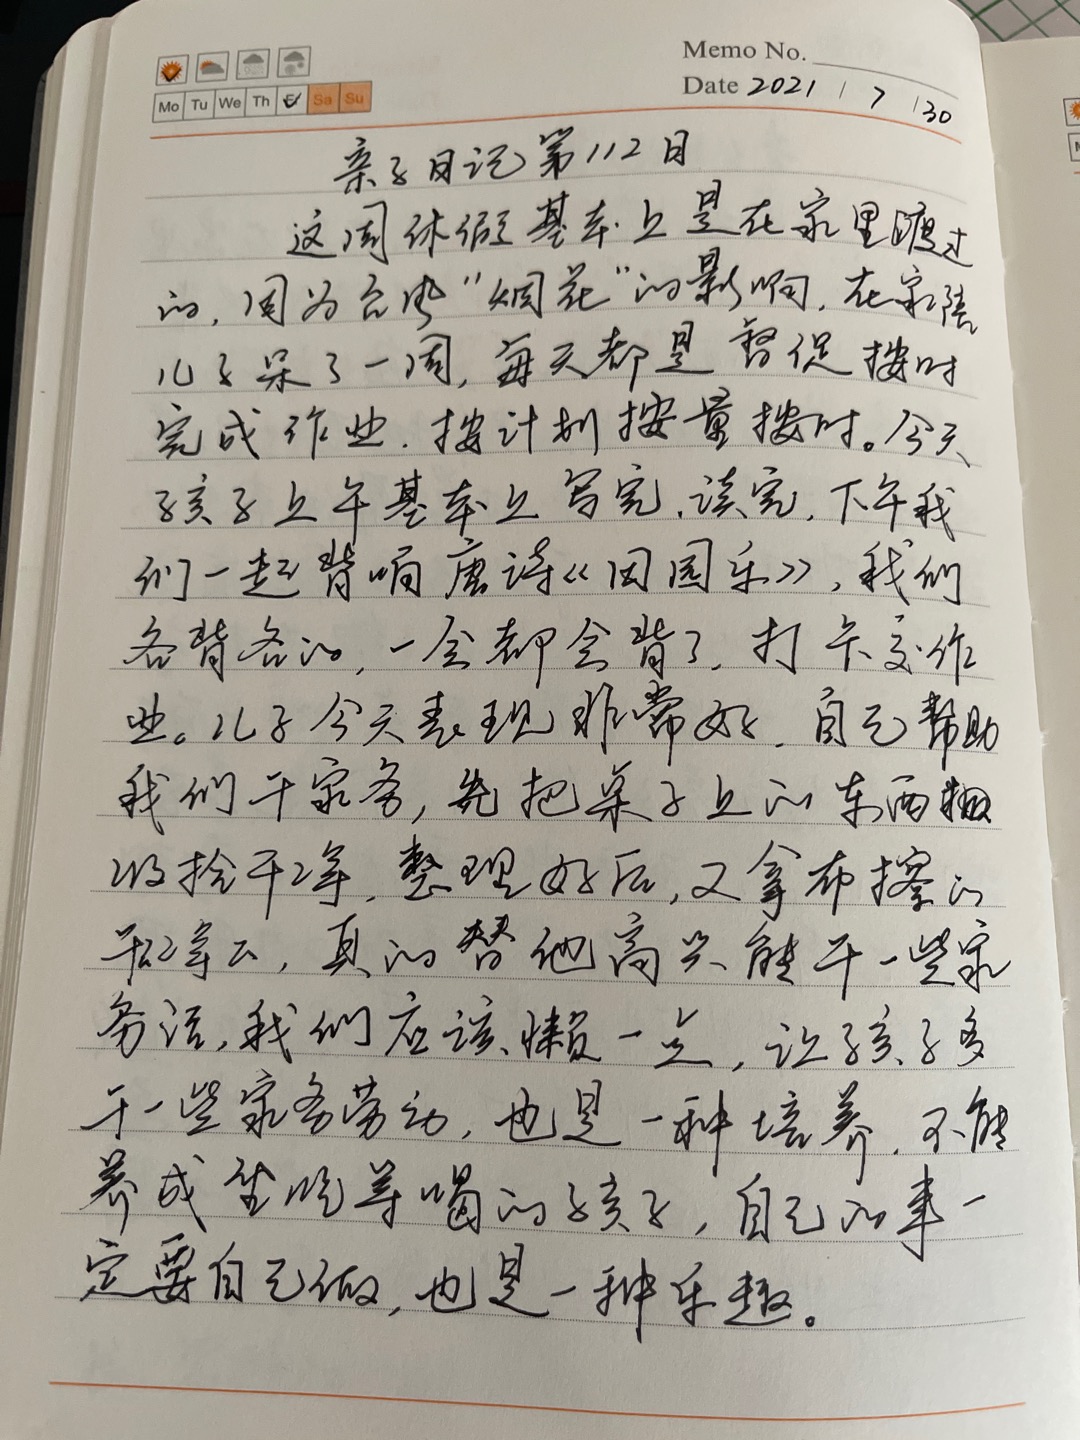 Memo No.
Mo Tu We Th Sa Su
Date 2021 / 7 / 30
亲子日记第112日
这周休假基本上是在家里度过
的，因为台风“烟花”的影响，在家陪
儿子呆了一周，每天都是督促按时
完成作业，按计划按量按时。今天
孩子上午基本上写完，读完，下午我
们一起背唐诗《田园乐》，我们
各背各的，一会都会背了，打卡交作
业。儿子今天表现非常好，自己帮助
我们干家务，先把桌子上的东西
收拾干净，整理好后，又拿布擦的
干净，真的替他高兴能干一些家
务活，我们应该懒一点，让孩子多
干一些家务劳动，也是一种培养，不能
养成坐吃等喝的孩子，自己的事一
定要自己做，也是一种乐趣。